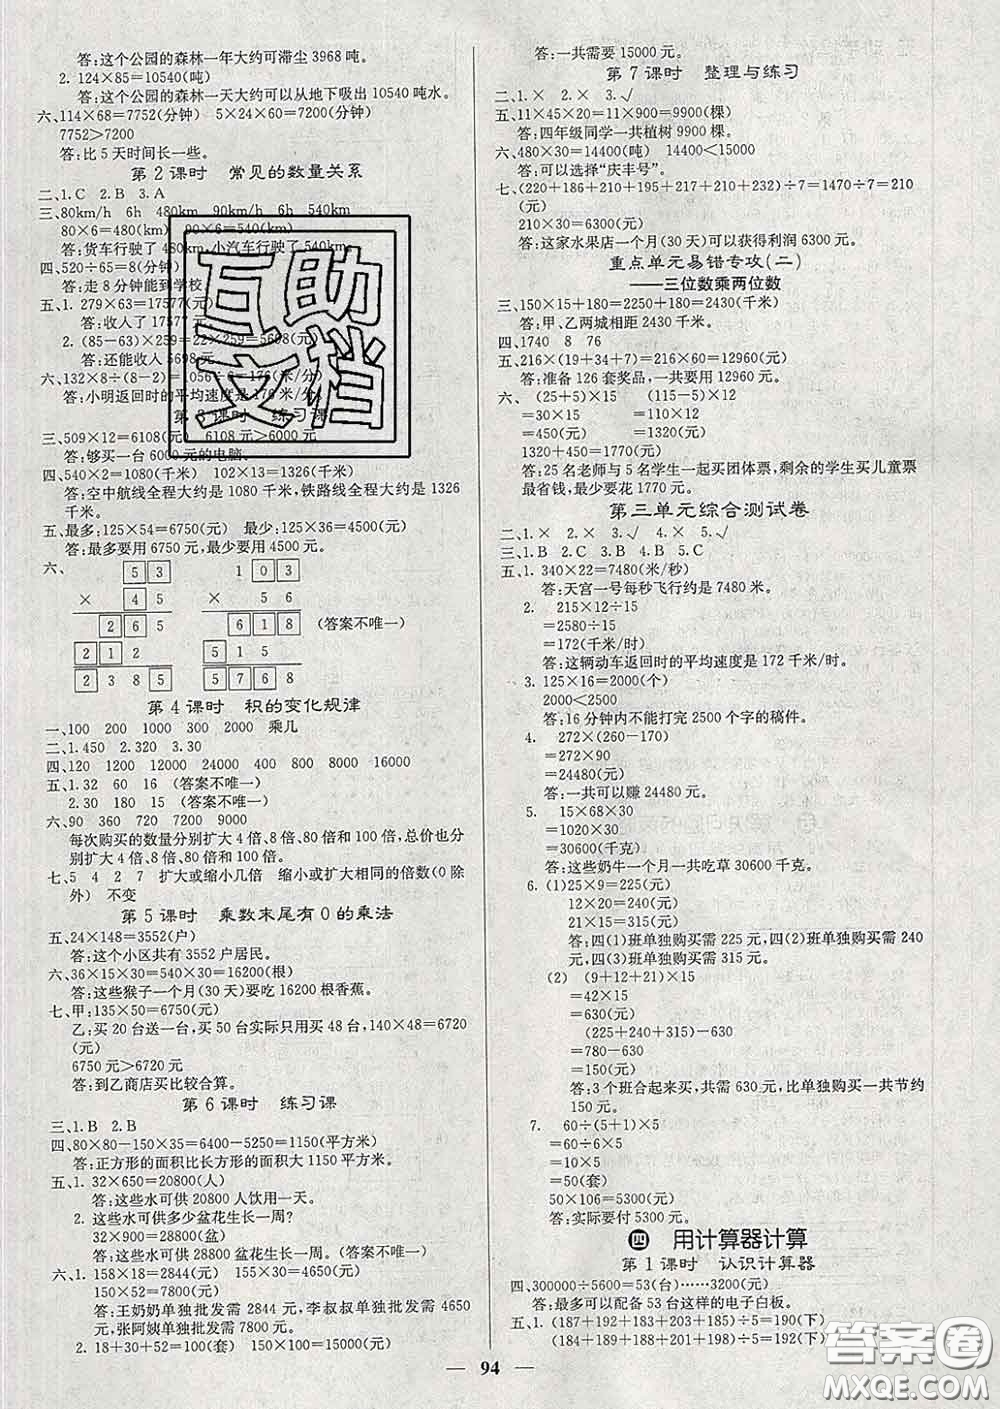 答:这个公园的森林一年大约可滞尘 3968 吨。
2. 124×85=10540(吨)
答:这个公园的森林一天大约可以从地下吸出 10540 吨水。
六、114×68=7752(分钟) 5×24×60=7200(分钟)
7752>7200
答:比 5 天时间长一些。
第 2 课时 常见的数量关系
二、1.C 2.B 3.A
三、80km/h 6h 480km 90km/h 6h 540km
80×6=480(km) 90×6=540(km)
答:货车行驶了 480km,小汽车行驶了 540km。
四、520÷65=8(分钟)
答:走 8 分钟能到学校。
五、1. 279×63=17577(元)
答:收入了 17577 元。
2. (85-63)×259=22×259=5698(元)
答:还能收入 5698 元。
六、132×8÷(8-2)=1056÷6=176(米/分)
答:小明返回时的平均速度是 176 米/分。
第 3 课时 练习课
三、509×12=6108(元) 6108 元>6000 元
答:够买一台 6000 元的电脑。
四、540×2=1080(千米) 102×13=1326(千米)
答:空中航线全程大约是 1080 千米,铁路线全程大约是 1326
千米。
五、最多:125×54=6750(元) 最少:125×36=4500(元)
答:最多要用 6750 元,最少要用 4500 元。
六、 5 3 1 0 3
× 4 5 × 5 6
2 6 5 6 1 8 (答案不唯一)
2 1 2 5 1 5
2 3 8 5 5 7 6 8
第 4 课时 积的变化规律
一、100 200 1000 300 2000 乘几
二、1.450 2.320 3.30
四、120 1200 12000 24000 400 800 8000 16000
五、1.32 60 16 (答案不唯一)
2.30 180 15 (答案不唯一)
六、90 360 720 7200 9000
每次购买的数量分别扩大 4 倍、8 倍、80 倍和 100 倍,总价也分
别扩大 4 倍、8 倍、80 倍和 100 倍。
七、5 4 2 7 扩大或缩小几倍 缩小或扩大相同的倍数(0 除
外) 不变
第 5 课时 乘数末尾有 0 的乘法
五、24×148=3552(户)
答:这个小区共有 3552 户居民。
六、36×15×30=540×30=16200(根)
答:这些猴子一个月(30 天)要吃 16200 根香蕉。
七、甲:135×50=6750(元)
乙:买 20 台送一台,买 50 台实际只用买 48 台,140×48=6720
(元)
6750 元>6720 元
答:到乙商店买比较合算。
第 6 课时 练习课
三、1.B 2.B
四、80×80-150×35=6400-5250=1150(平方米)
答:正方形的面积比长方形的面积大 1150 平方米。
五、1. 32×650=20800(人)
答:这些水可供 20800 人饮用一天。
2. 这些水可供多少盆花生长一周?
32×900=28800(盆)
答:这些水可供 28800 盆花生长一周。(答案不唯一)
六、1. 158×18=2844(元) 155×30=4650(元)
150×52=7800(元)
答:王奶奶单独批发需 2844 元,李叔叔单独批发需 4650
元,张阿姨单独批发需 7800 元。
2. 18+30+52=100(套) 150×100=15000(元)
答:一共需要 15000 元。
第 7 课时 整理与练习
二、1.× 2.× 3.√
五、11×45×20=11×900=9900(棵)
答:四年级同学一共植树 9900 棵。
六、480×30=14400(吨) 14400<15000
答:可以选择“庆丰号”。
七、(220+186+210+195+217+210+232)÷7=1470÷7=210
(元)
210×30=6300(元)
答:这家水果店一个月(30 天)可以获得利润 6300 元。
重点单元易错专攻(二)
——三位数乘两位数
三、150×15+180=2250+180=2430(千米)
答:甲、乙两城相距 2430 千米。
四、1740 8 76
五、216×(19+34+7)=216×60=12960(元)
答:准备 126 套奖品,一共要用 12960 元。
六、 (25+5)×15 (115-5)×12
=30×15 =110×12
=450(元) =1320(元)
1320+450=1770(元)
答:25 名老师与 5 名学生一起买团体票,剩余的学生买儿童票
最省钱,最少要花 1770 元。
第三单元综合测试卷
二、1.× 2.× 3.√ 4.× 5.√
三、1.B 2.C 3.B 4.B 5.C
五、1. 340×22=7480(米/秒)
答:天宫一号每秒飞行约是 7480 米。
2. 215×12÷15
=2580÷15
=172(千米/时)
答:这辆动车返回时的平均速度是 172 千米/时。
3. 125×16=2000(个)
2000<2500
答:16 分钟内不能打完 2500 个字的稿件。
4. 272×(260-170)
=272×90
=24480(元)
答:一共可以赚 24480 元。
5. 15×68×30
=1020×30
=30600(千克)
答:这些奶牛一个月一共吃草 30600 千克。
6. (1)25×9=225(元)
12×20=240(元)
21×15=315(元)
答:四(1)班单独购买需 225 元,四(2)班单独购买需 240
元,四(3)班单独购买需 315 元。
(2) (9+12+21)×15
=42×15
=630(元)
(225+240+315)-630
=780-630
=150(元)
答:3 个班合起来买,共需 630 元,比单独购买一共节约
150 元。
7. 60÷(5+1)×5
=60÷6×5
=10×5
=50(套)
50×106=5300(元)
答:实际要付 5300 元。
四 用计算器计算
第 1 课时 认识计算器
四、300000÷5600=53(台)……3200(元)
答:最多可以配备 53 台这样的电子白板。
五、1. (187+192+183+203+185)÷5=190(下)
(184+189+188+197+202)÷5=192(下)
94
互助
文档
答案圈
MXQE.COM